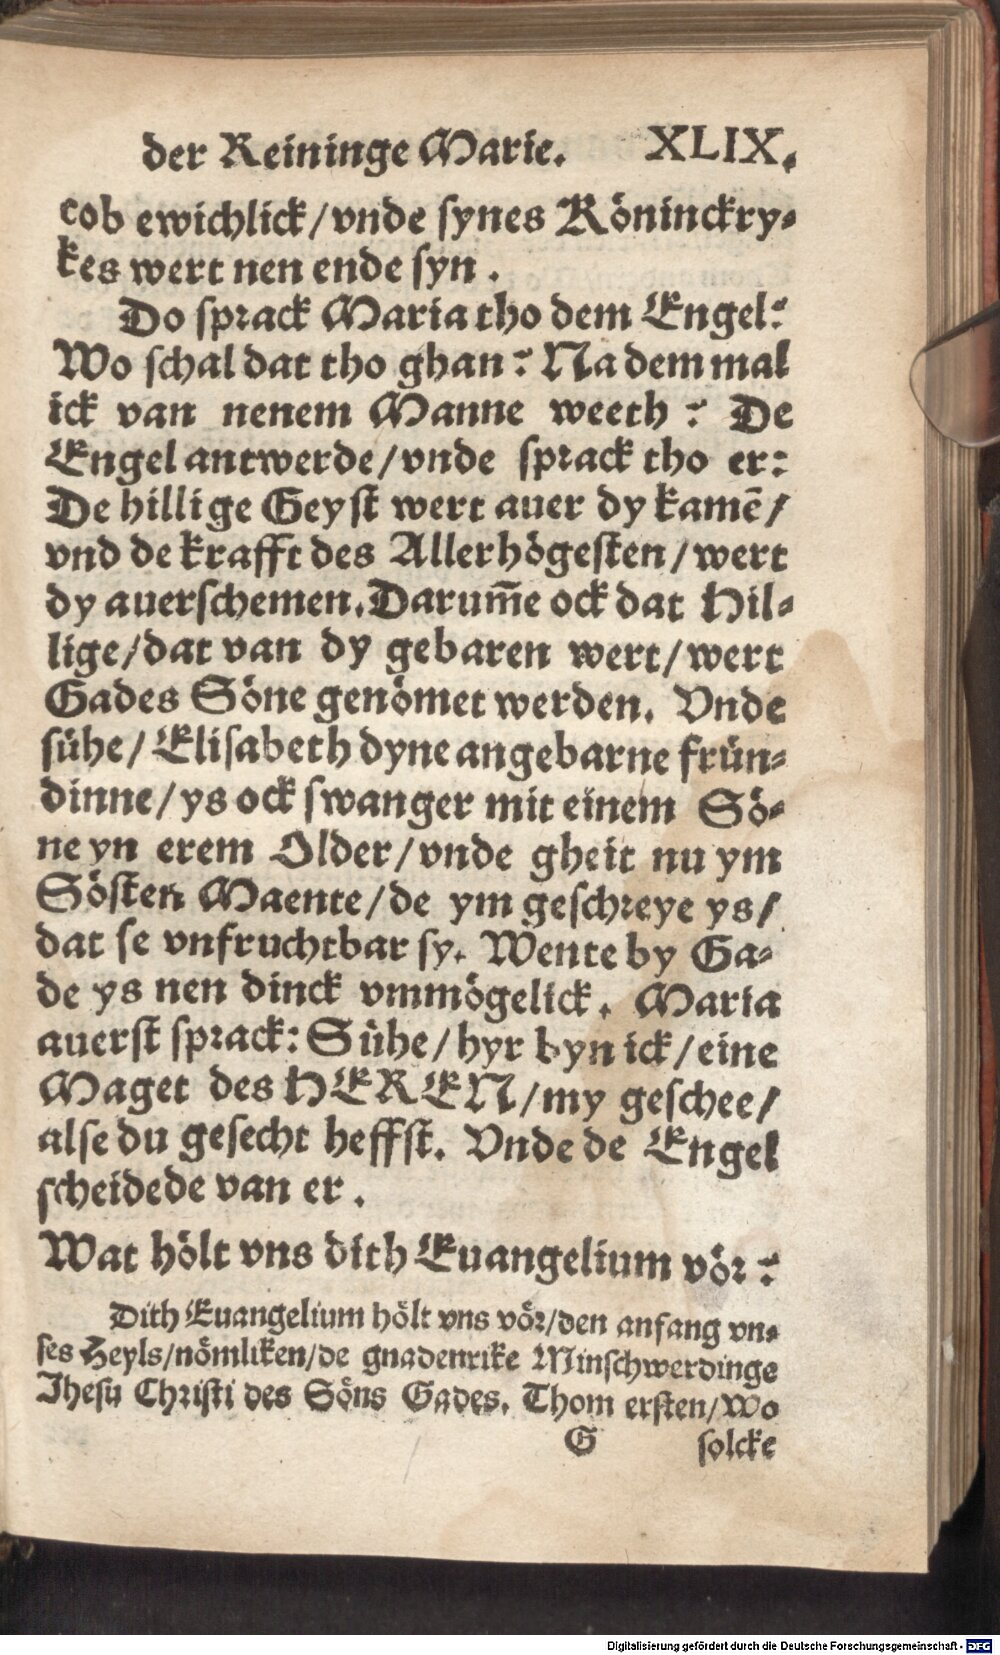 der Reininge Marie. XLIX.
cob ewichlick/vnde synes Köninckry-
kes wert nen ende syn.
Do sprack Maria tho dem Engel:
Wo schal dat tho ghan? Na dem mal
ick van nenem Manne weeth? De
Engel antwerde/vnde sprack tho er:
De hillige Geyst wert auer dy kamē/
vnd de krafft des Allerhögesten/wert
dy auerschemen. Darum̄e ock dat Hil-
lige/dat van dy gebaren wert/wert
Gades Söne genömet werden. Vnde
sühe/Elisabeth dyne angebarne frün-
dinne/ys ock swanger mit einem Sö-
ne yn erem Older/vnde gheit nu ym
Sösten Maente/de ym geschreye ys/
dat se vnfruchtbar sy. Wente by Ga-
de ys nen dinck vmmögelick. Maria
auerst sprack: Sühe/hyr byn ick/eine
Maget des HEREN/my geschee/
alse du gesecht heffst. Vnde de Engel
scheidede van er.
Wat hölt vns dith Euangelium vör?
Dith Euangelium hölt vns vör/den anfang vn-
ses Heyls/nömliken/de gnadenrike Minschwerdinge
Jhesu Christi des Söns Gades. Thom ersten/Wo
G solcke
Digitalisierung gefördert durch die Deutsche Forschungsgemeinschaft - DFG